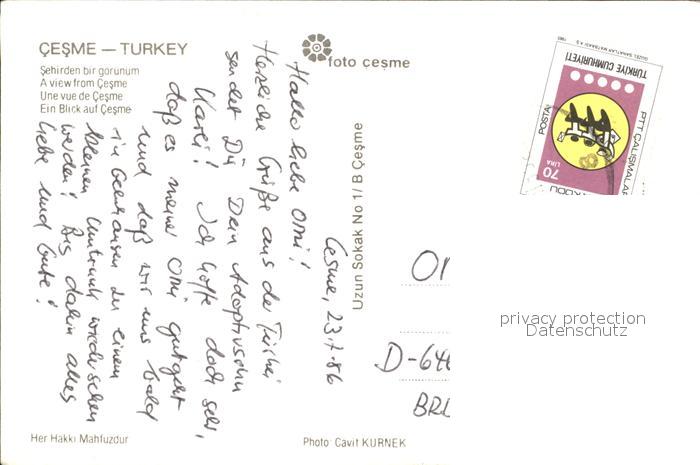 ÇEŞME — TURKEY
Şehirden bir görünüm
A view from Çeşme
Une vue de Çeşme
Ein Blick auf Çeşme
foto çeşme
Uzun Sokak No 1/B Çeşme
Çesme, 23.7.86
Hallo liebe Omi!
Herzliche Grüße aus der Türkei
sendet Dir Dein Adoptivsohn
Ich hoffe doch sehr,
daß es meiner Omi gutgeht
und daß wir uns bald
in Gelnhausen zu einem
kleinen Umtrunk wiedersehen
werden! Bis dahin alles
Liebe und Gute!
GÜZEL SANATLAR MATBAASI A.Ş. 1985
TÜRKİYE CUMHURİYETİ
POSTA
PTT ÇALIŞMALAR
70
LİRA
D-646
privacy protection
Datenschutz
Her Hakkı Mahfuzdur
Photo: Cavit KURNEK